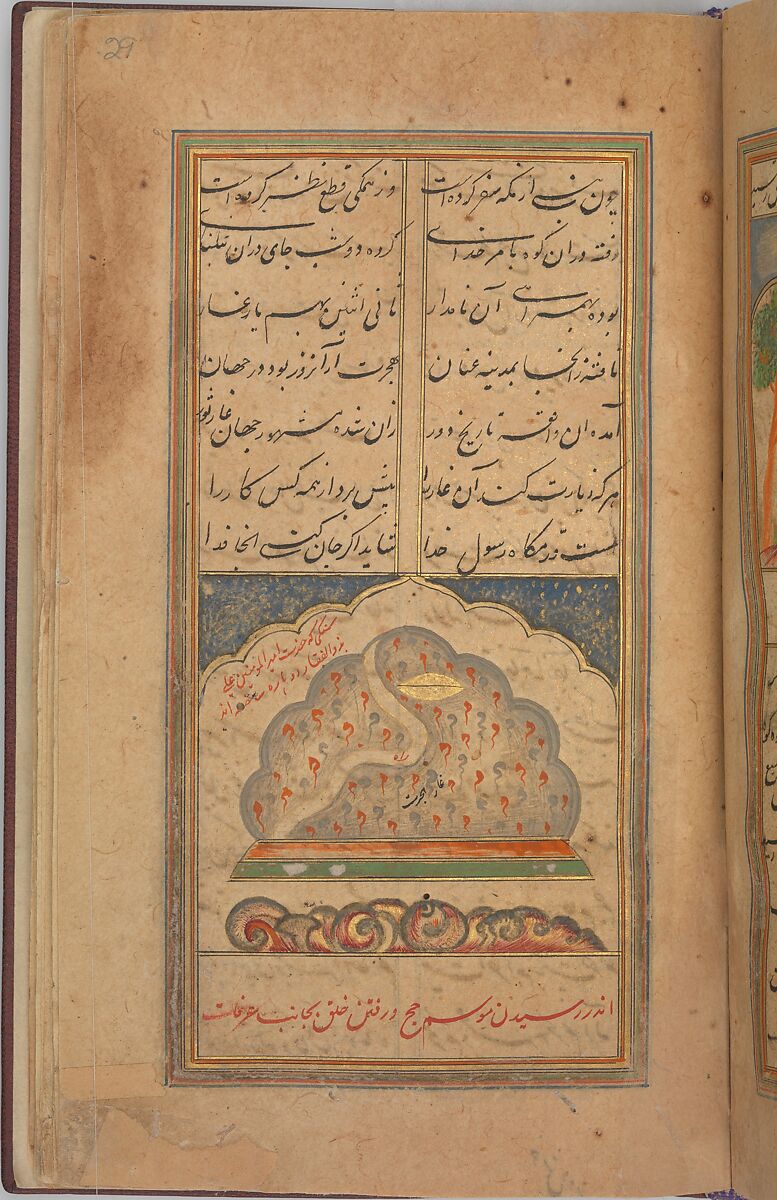 29
چون نبی از مکه سفر کرده است وز همگی قطع نظر کرده است
رفته دران کوه بامر خدای کرده دو شب جای دران تنگنای
بوده بهمراهی آن نامدار ثانی اثنین بهم یار غار
تافته زانجا بمدینه عنان هجرت ازآنروز بود در جهان
آمده آن واقعه تاریخ دور زان شده مشهور جهان غار ثور
هر که زیارت کند آن غار را پیش برد از همه کس کار را
هست قدمگاه رسول خدا شاید اگر جان کنی آنجا فدا
سنگی که حضرت امیر المؤمنین علی
بذوالفقار دو پاره ساخته اند
راه
غار هجرت
اندر رسیدن موسم حج و رفتن خلق بجانب عرفات